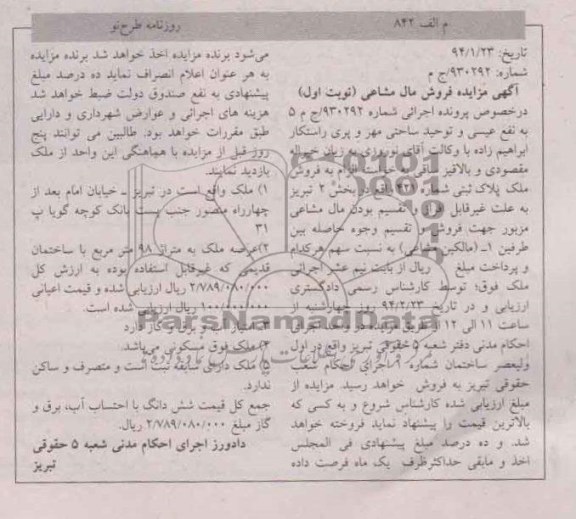 م الف ۸۴۲
روزنامه طرح‌نو
تاریخ: ۹۴/۱/۲۳
شماره: ۹۳۰۲۹۲/ج م
آگهی مزایده فروش مال مشاعی (نوبت اول)
درخصوص پرونده اجرائی شماره ۹۳۰۲۹۲/ج م ۵
به نفع عیسی و توحید ساحتی مهر و پری راستکار
ابراهیم زاده با وکالت آقای نوروزی به زیان
مقصودی و بالاقیز ساقی به خواسته الزام به فروش
ملک پلاک ثبتی شماره واقع در بخش ۲ تبریز
به علت غیرقابل افراز و تقسیم بودن مال مشاعی
مزبور جهت فروش و تقسیم وجوه حاصله بین
طرفین ۱ـ (مالکین مشاعی) به نسبت سهم هرکدام
و پرداخت مبلغ ریال از بابت نیم عشر اجرائی
ملک فوق؛ توسط کارشناس رسمی دادگستری
ارزیابی و در تاریخ ۹۴/۲/۲۳ روز چهارشنبه از
ساعت ۱۱ الی ۱۲ از طریق مزایده در واحد اجرای
احکام مدنی دفتر شعبه ۵ حقوقی تبریز واقع در اول
ولیعصر ساختمان شماره ۹ اجرای احکام شعب
حقوقی تبریز به فروش خواهد رسید. مزایده از
مبلغ ارزیابی شده کارشناس شروع و به کسی که
بالاترین قیمت را پیشنهاد نماید فروخته خواهد
شد. و ده درصد مبلغ پیشنهادی فی المجلس
اخذ و مابقی حداکثرظرف یک ماه فرصت داده
می‌شود برنده مزایده اخذ خواهد شد برنده مزایده
به هر عنوان اعلام انصراف نماید ده درصد مبلغ
پیشنهادی به نفع صندوق دولت ضبط خواهد شد
هزینه های اجرائی و عوارض شهرداری و دارایی
طبق مقررات خواهد بود. طالبین می توانند پنج
روز قبل از مزایده با هماهنگی این واحد از ملک
بازدید نمایند.
۱) ملک واقع است در تبریز ـ خیابان امام بعد از
چهارراه منصور جنب پست بانک کوچه گویا پ
۳۱
۲)عرصه ملک به متراژ ۹۸ متر مربع با ساختمان
قدیمی که غیرقابل استفاده بوده به ارزش کل
۲/۷۸۹/۰۸۰/۰۰۰ ریال ارزیابی شده و قیمت اعیانی
۱۰۰/۰۰۰/۰۰۰ ریال ارزیابی شده است.
۳)امتیاز آب و برق و گاز دارد
۴) ملک فوق مسکونی می‌باشد.
۵) ملک دارای سابقه ثبت است و متصرف و ساکن
ندارد.
جمع کل قیمت شش دانگ با احتساب آب، برق و
گاز مبلغ ۲/۷۸۹/۰۸۰/۰۰۰ ریال.
دادورز اجرای احکام مدنی شعبه ۵ حقوقی
تبریز
ParsNamadData